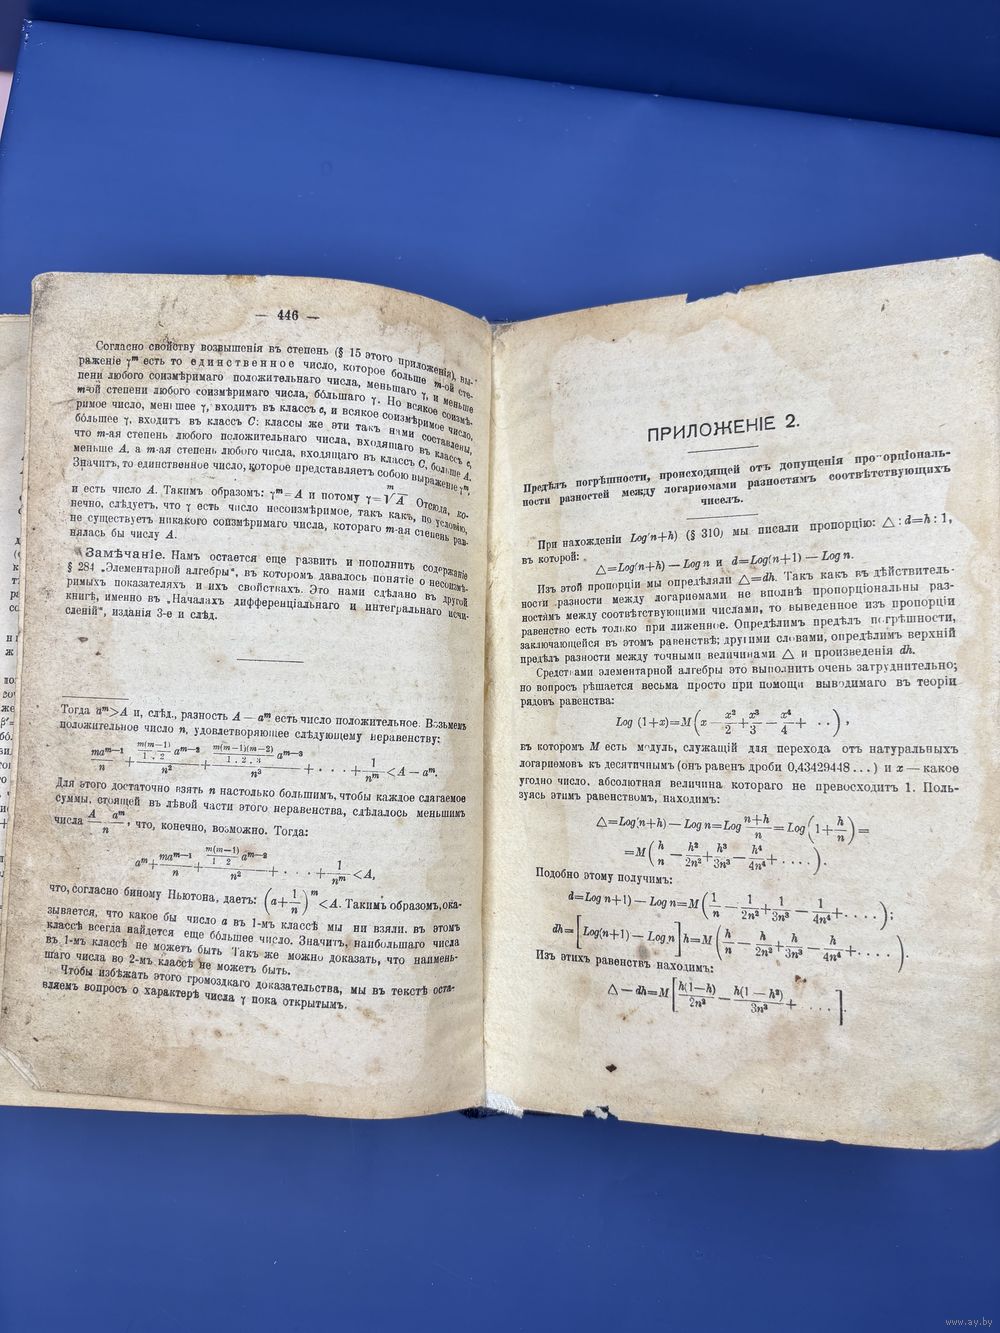 — 446 —
Согласно свойству возвышенія въ степень (§ 15 этого приложенія), вы-
раженіе γᵐ есть то единственное число, которое больше m-ой сте-
пени любого соизмѣримаго положительнаго числа, меньшаго γ, и меньше
m-ой степени любого соизмѣримаго числа, бо́льшаго γ. Но всякое соизмѣ-
римое число, меньшее γ, входитъ въ классъ c, и всякое соизмѣримое число,
бо́льшее γ, входитъ въ классъ C: классы же эти такъ нами составлены,
что m-ая степень любого положительнаго числа, входящаго въ классъ c,
меньше A, а m-ая степень любого числа, входящаго въ классъ C, больше A.
Значитъ, то единственное число, которое представляетъ собою выраженіе γᵐ,
и есть число A. Такимъ образомъ: γᵐ=A и потому γ=ᵐ√A Отсюда, ко-
нечно, слѣдуетъ, что γ есть число несоизмѣримое, такъ какъ, по условію,
не существуетъ никакого соизмѣримаго числа, котораго m-ая степень рав-
нялась бы числу A.
Замѣчаніе. Намъ остается еще развить и пополнить содержаніе
§ 284 „Элементарной алгебры“, въ которомъ давалось понятіе о несоизмѣ-
римыхъ показателяхъ и ихъ свойствахъ. Это нами сдѣлано въ другой
книгѣ, именно въ „Началахъ дифференціальнаго и интегральнаго исчи-
сленій“, изданія 3-е и слѣд.
Тогда aᵐ>A и, слѣд., разность A — aᵐ есть число положительное. Возьмемъ
положительное число n, удовлетворяющее слѣдующему неравенству:
maᵐ⁻¹/n + (m(m—1)/1 . 2 aᵐ⁻²)/n² + (m(m—1)(m—2)/1 . 2 . 3 aᵐ⁻³)/n³ + . . . + 1/nᵐ < A — aᵐ.
Для этого достаточно взять n настолько большимъ, чтобы каждое слагаемое
суммы, стоящей въ лѣвой части этого неравенства, сдѣлалось меньшимъ
числа (A — aᵐ)/n, что, конечно, возможно. Тогда:
aᵐ + maᵐ⁻¹/n + (m(m—1)/1 2 aᵐ⁻²)/n² + . . . + 1/nᵐ < A,
что, согласно биному Ньютона, даетъ: (a + 1/n)ᵐ < A. Такимъ образомъ, ока-
зывается, что какое бы число a въ 1-мъ классѣ мы ни взяли. въ этомъ
классѣ всегда найдется еще бо́льшее число. Значитъ, наибольшаго числа
въ 1-мъ классѣ не можетъ быть Такъ же можно доказать, что наимень-
шаго числа во 2-мъ классѣ не можетъ быть.
Чтобы избѣжать этого громоздкаго доказательства, мы въ текстѣ оста-
вляемъ вопросъ о характерѣ числа γ пока открытымъ.
ПРИЛОЖЕНІЕ 2.
Предѣлъ погрѣшности, происходящей отъ допущенія пропорціональ-
ности разностей между логариѳмами разностямъ соотвѣтствующихъ
чиселъ.
При нахожденіи Log n+h) (§ 310) мы писали пропорцію: △ : d=h : 1,
въ которой:
△=Log(n+h) — Log n и d=Log(n+1) — Log n.
Изъ этой пропорціи мы опредѣляли △=dh. Такъ какъ въ дѣйствитель-
ности разности между логариѳмами не вполнѣ пропорціональны раз-
ностямъ между соотвѣтствующими числами, то выведенное изъ пропорціи
равенство есть только при лиженное. Опредѣлимъ предѣлъ погрѣшности,
заключающейся въ этомъ равенствѣ; другими словами, опредѣлимъ верхній
предѣлъ разности между точными величинами △ и произведенія dh.
Средствами элементарной алгебры это выполнить очень затруднительно;
но вопросъ рѣшается весьма просто при помощи выводимаго въ теоріи
рядовъ равенства:
Log (1+x)=M(x — x²/2 + x³/3 — x⁴/4 + . . ),
въ которомъ M есть модуль, служащій для перехода отъ натуральныхъ
логариѳмовъ къ десятичнымъ (онъ равенъ дроби 0,43429448 . . .) и x — какое
угодно число, абсолютная величина котораго не превосходитъ 1. Поль-
зуясь этимъ равенствомъ, находимъ:
△=Log(n+h) — Log n=Log (n+h)/n = Log(1 + h/n) =
=M(h/n — h²/2n² + h³/3n³ — h⁴/4n⁴ + . . . .).
Подобно этому получимъ:
d=Log n+1) — Log n=M(1/n — 1/2n² + 1/3n³ — 1/4n⁴ + . . . .);
dh=[Log(n+1) — Log n]h=M(h/n — h/2n² + h/3n³ — h/4n⁴ + . . . .).
Изъ этихъ равенствъ находимъ:
△ — dh=M[h(1—h)/2n² — h(1 — h²)/3n³ + . . . .].
www.ay.by